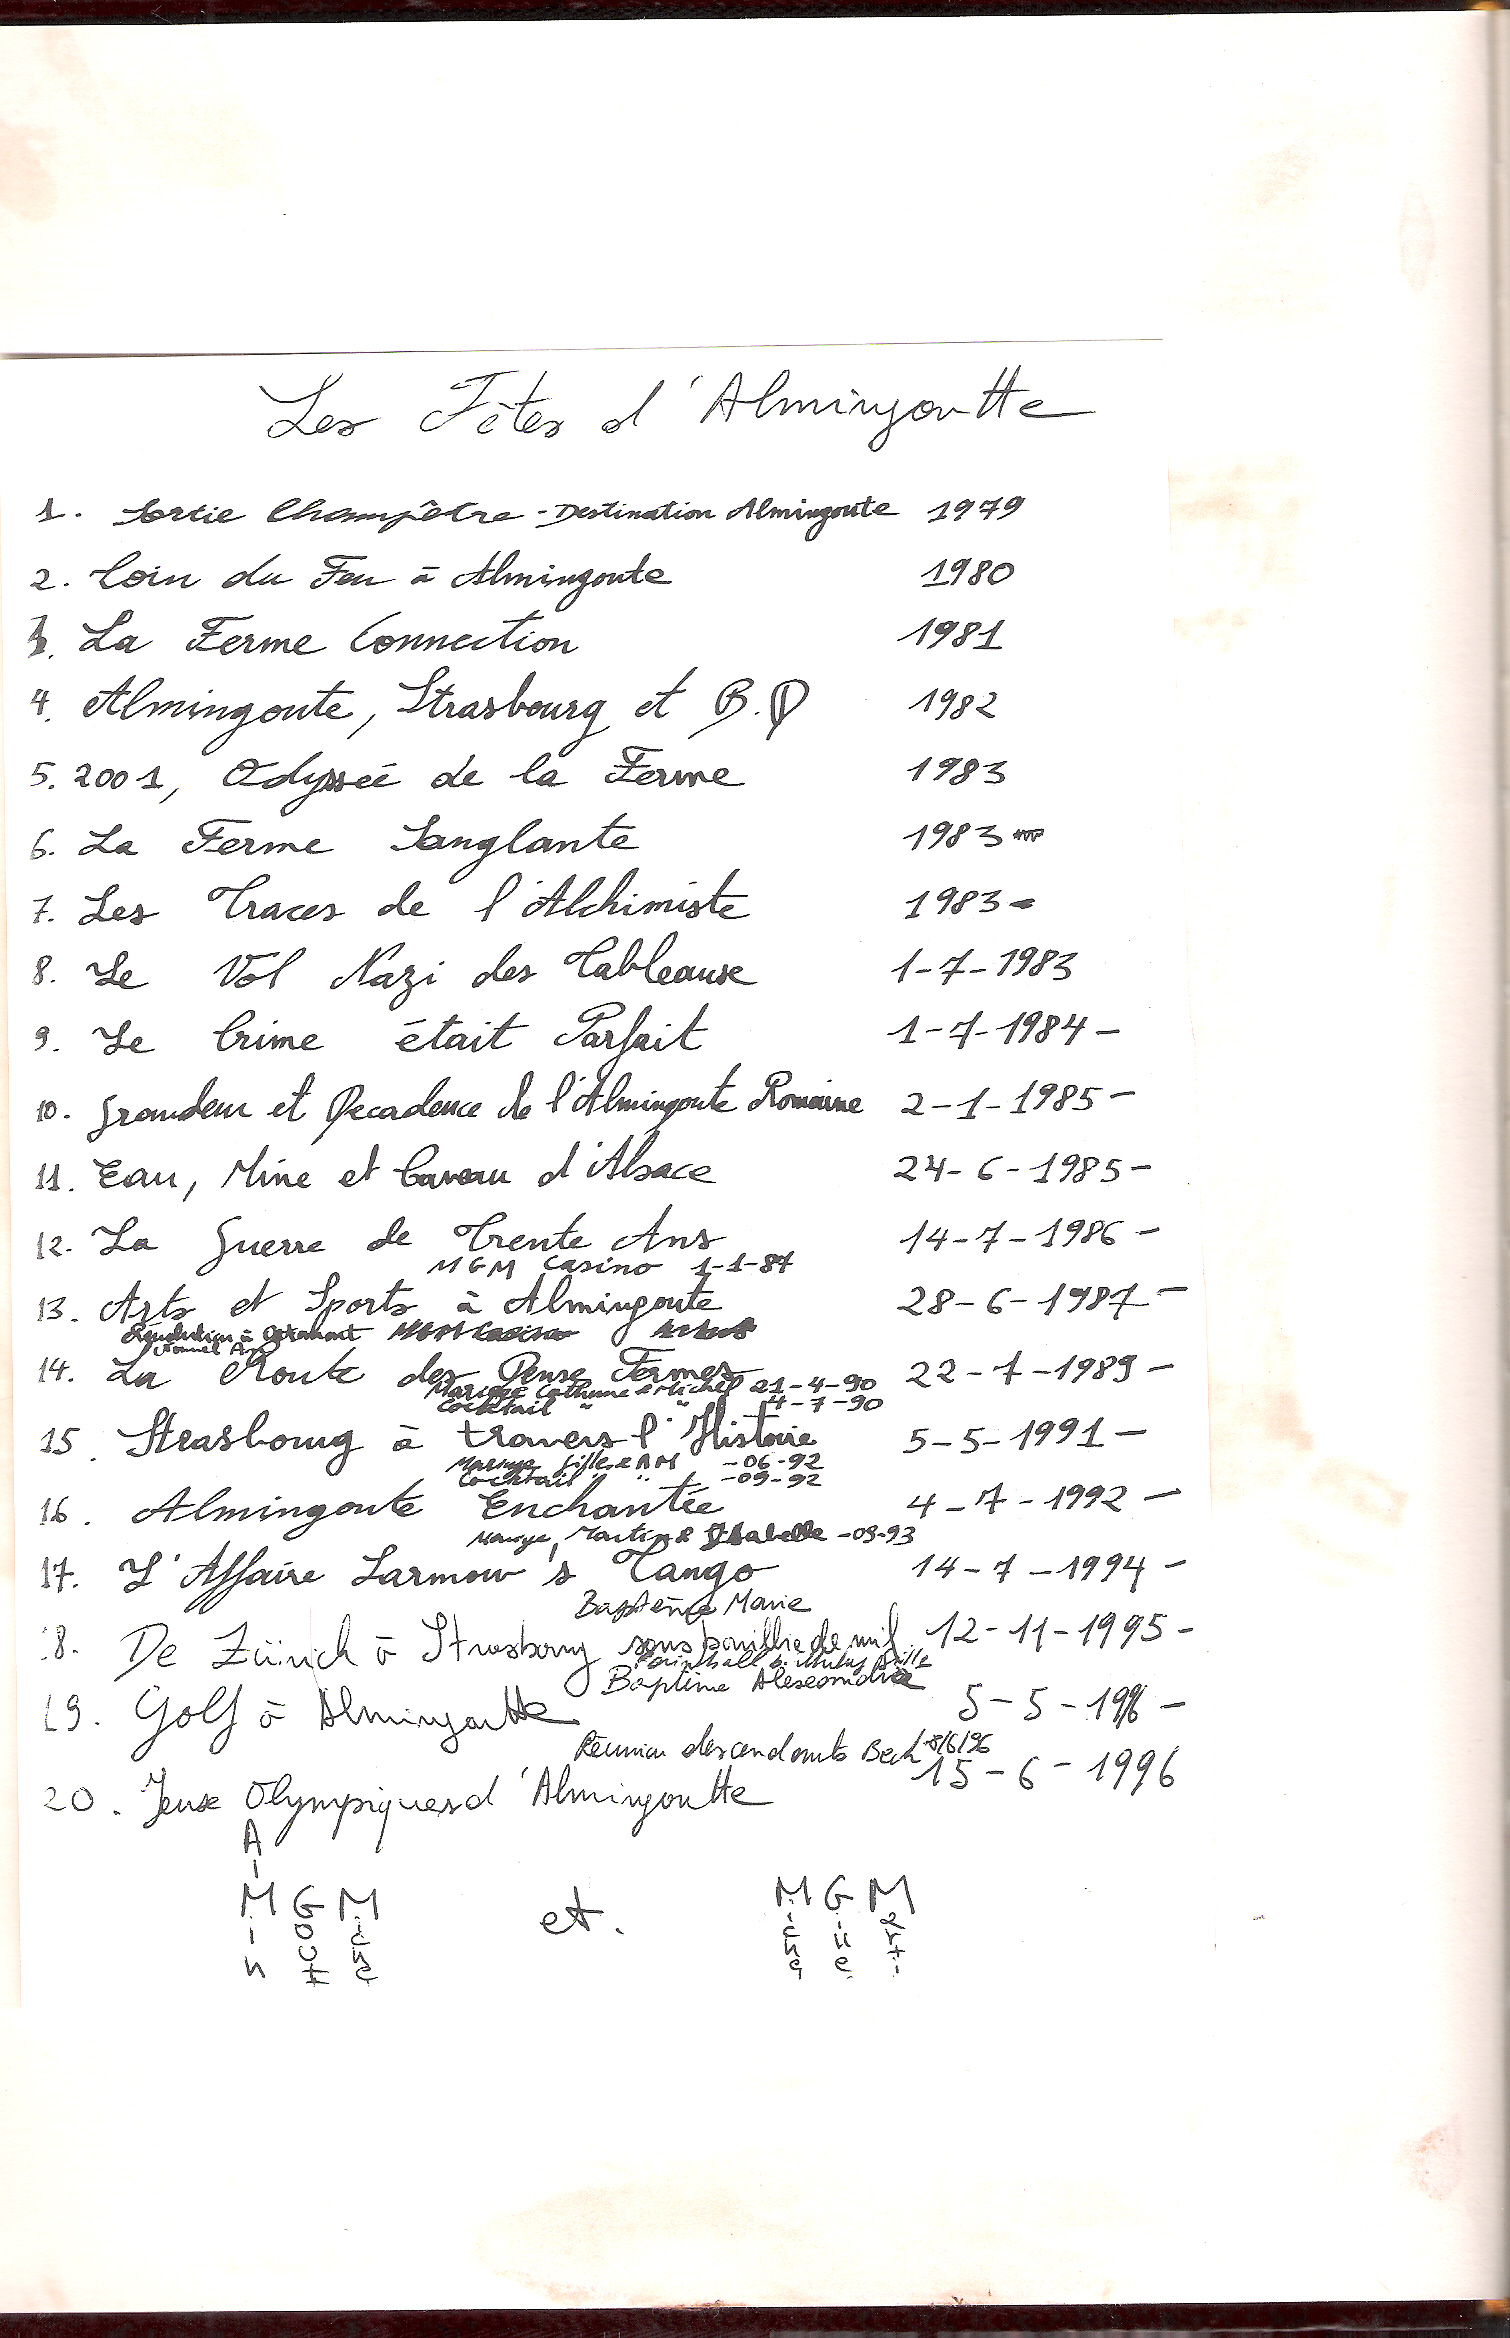 Les Fêtes d'Almingoutte
1. Sortie Champêtre - Destination Almingoute 1979
2. Coin du Feu à Almingoute 1980
3. La Ferme Connection 1981
4. Almingoute, Strasbourg et B.D 1982
5. 2001, Odyssée de la Ferme 1983
6. La Ferme Sanglante 1983
7. Les Traces de l'Alchimiste 1983 -
8. Le Vol Nazi des Tableaux 1-7-1983
9. Le Crime était Parfait 1-7-1984 -
10. Grandeur et Decadence de l'Almingoute Romaine 2-1-1985 -
11. Eau, Mine et Caveau d'Alsace 24-6-1985 -
12. La Guerre de Trente Ans 14-7-1986 -
MGM Casino 1-1-87
13. Arts et Sports à Almingoute 28-6-1987 -
à
14. La Route des Deux Fermes 22-7-1989 -
Mariage Cathune & Michel 21-4-90
Cocktail " " 4-7-90
15. Strasbourg à travers l'Histoire 5-5-1991 -
Mariage Gilles & AM -06-92
Cocktail " " -09-92
16. Almingoute Enchantée 4-7-1992 -
Mariage, Martin & Isabelle -09-93
17. L'Affaire Larmour's Tango 14-7-1994 -
Baptême Marie
18. De Zürich à Strasbourg sous bouillie de mil 12-11-1995 -
Paintball Gille
Baptême Alexandre
19. Golf à Almingoutte 5-5-1996 -
Réunion descendants Bech 8/6/96
20. Jeux Olympiques d'Almingoutte 15-6-1996
A
-
M G M et. M G M